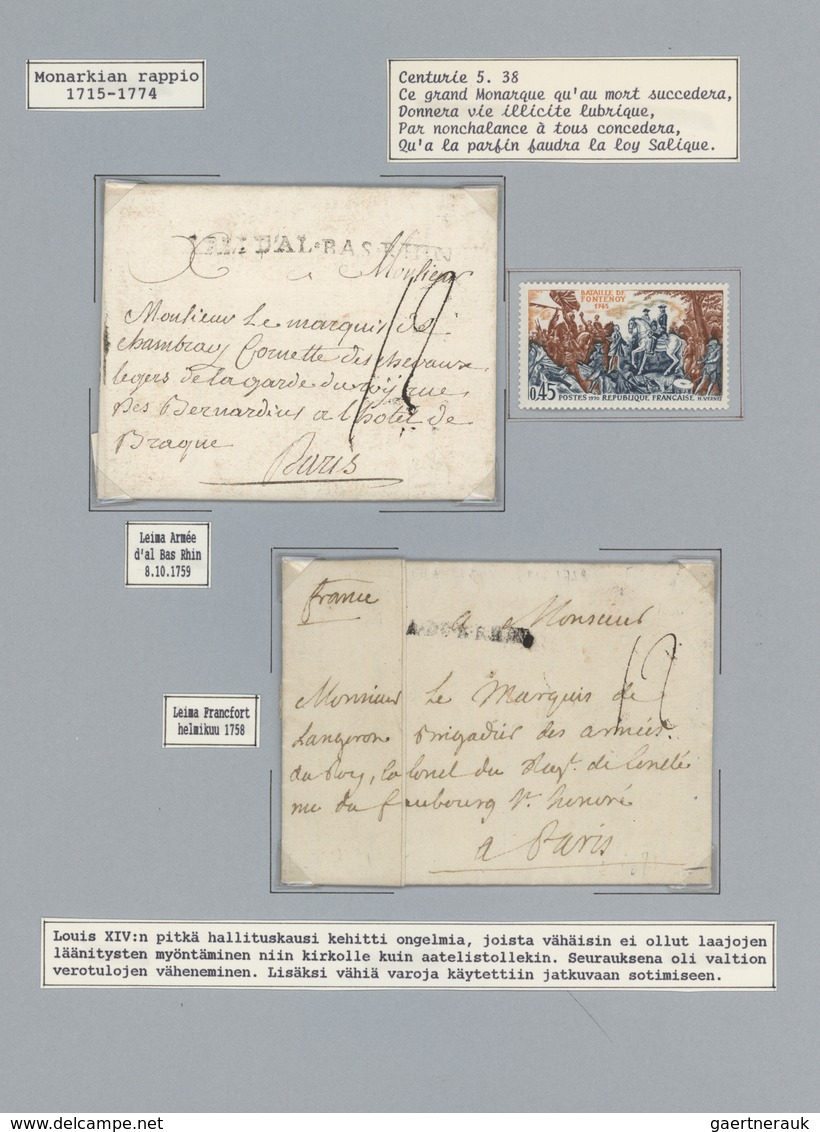 Monarkian rappio
1715-1774
Centurie 5. 38
Ce grand Monarque qu'au mort succedera,
Donnera vie illicite lubrique,
Par nonchalance à tous concedera,
Qu'a la parfin faudra la loy Salique.
D'AL-BAS-RHIN
Monsieur
12
Monsieur Le marquis de
chambray Cornette des chevaux
legers de la garde du roy rue
des Bernardins a l'hotel de
Braque
Paris
BATAILLE DE
FONTENOY
1745
0,45 POSTES 1970 REPUBLIQUE FRANÇAISE H.VERNET
Leima Armée
d'al Bas Rhin
8.10.1759
france
a Monsieur
12
Monsieur Le Marquis de
Langeron Brigadier des armées
du Roy, Colonel du Regt. de
rue du faubourg St. honoré
a Paris
Leima Francfort
helmikuu 1758
Louis XIV:n pitkä hallituskausi kehitti ongelmia, joista vähäisin ei ollut laajojen
läänitysten myöntäminen niin kirkolle kuin aatelistollekin. Seurauksena oli valtion
verotulojen väheneminen. Lisäksi vähiä varoja käytettiin jatkuvaan sotimiseen.
www.delcampe.net
gaertnerauk